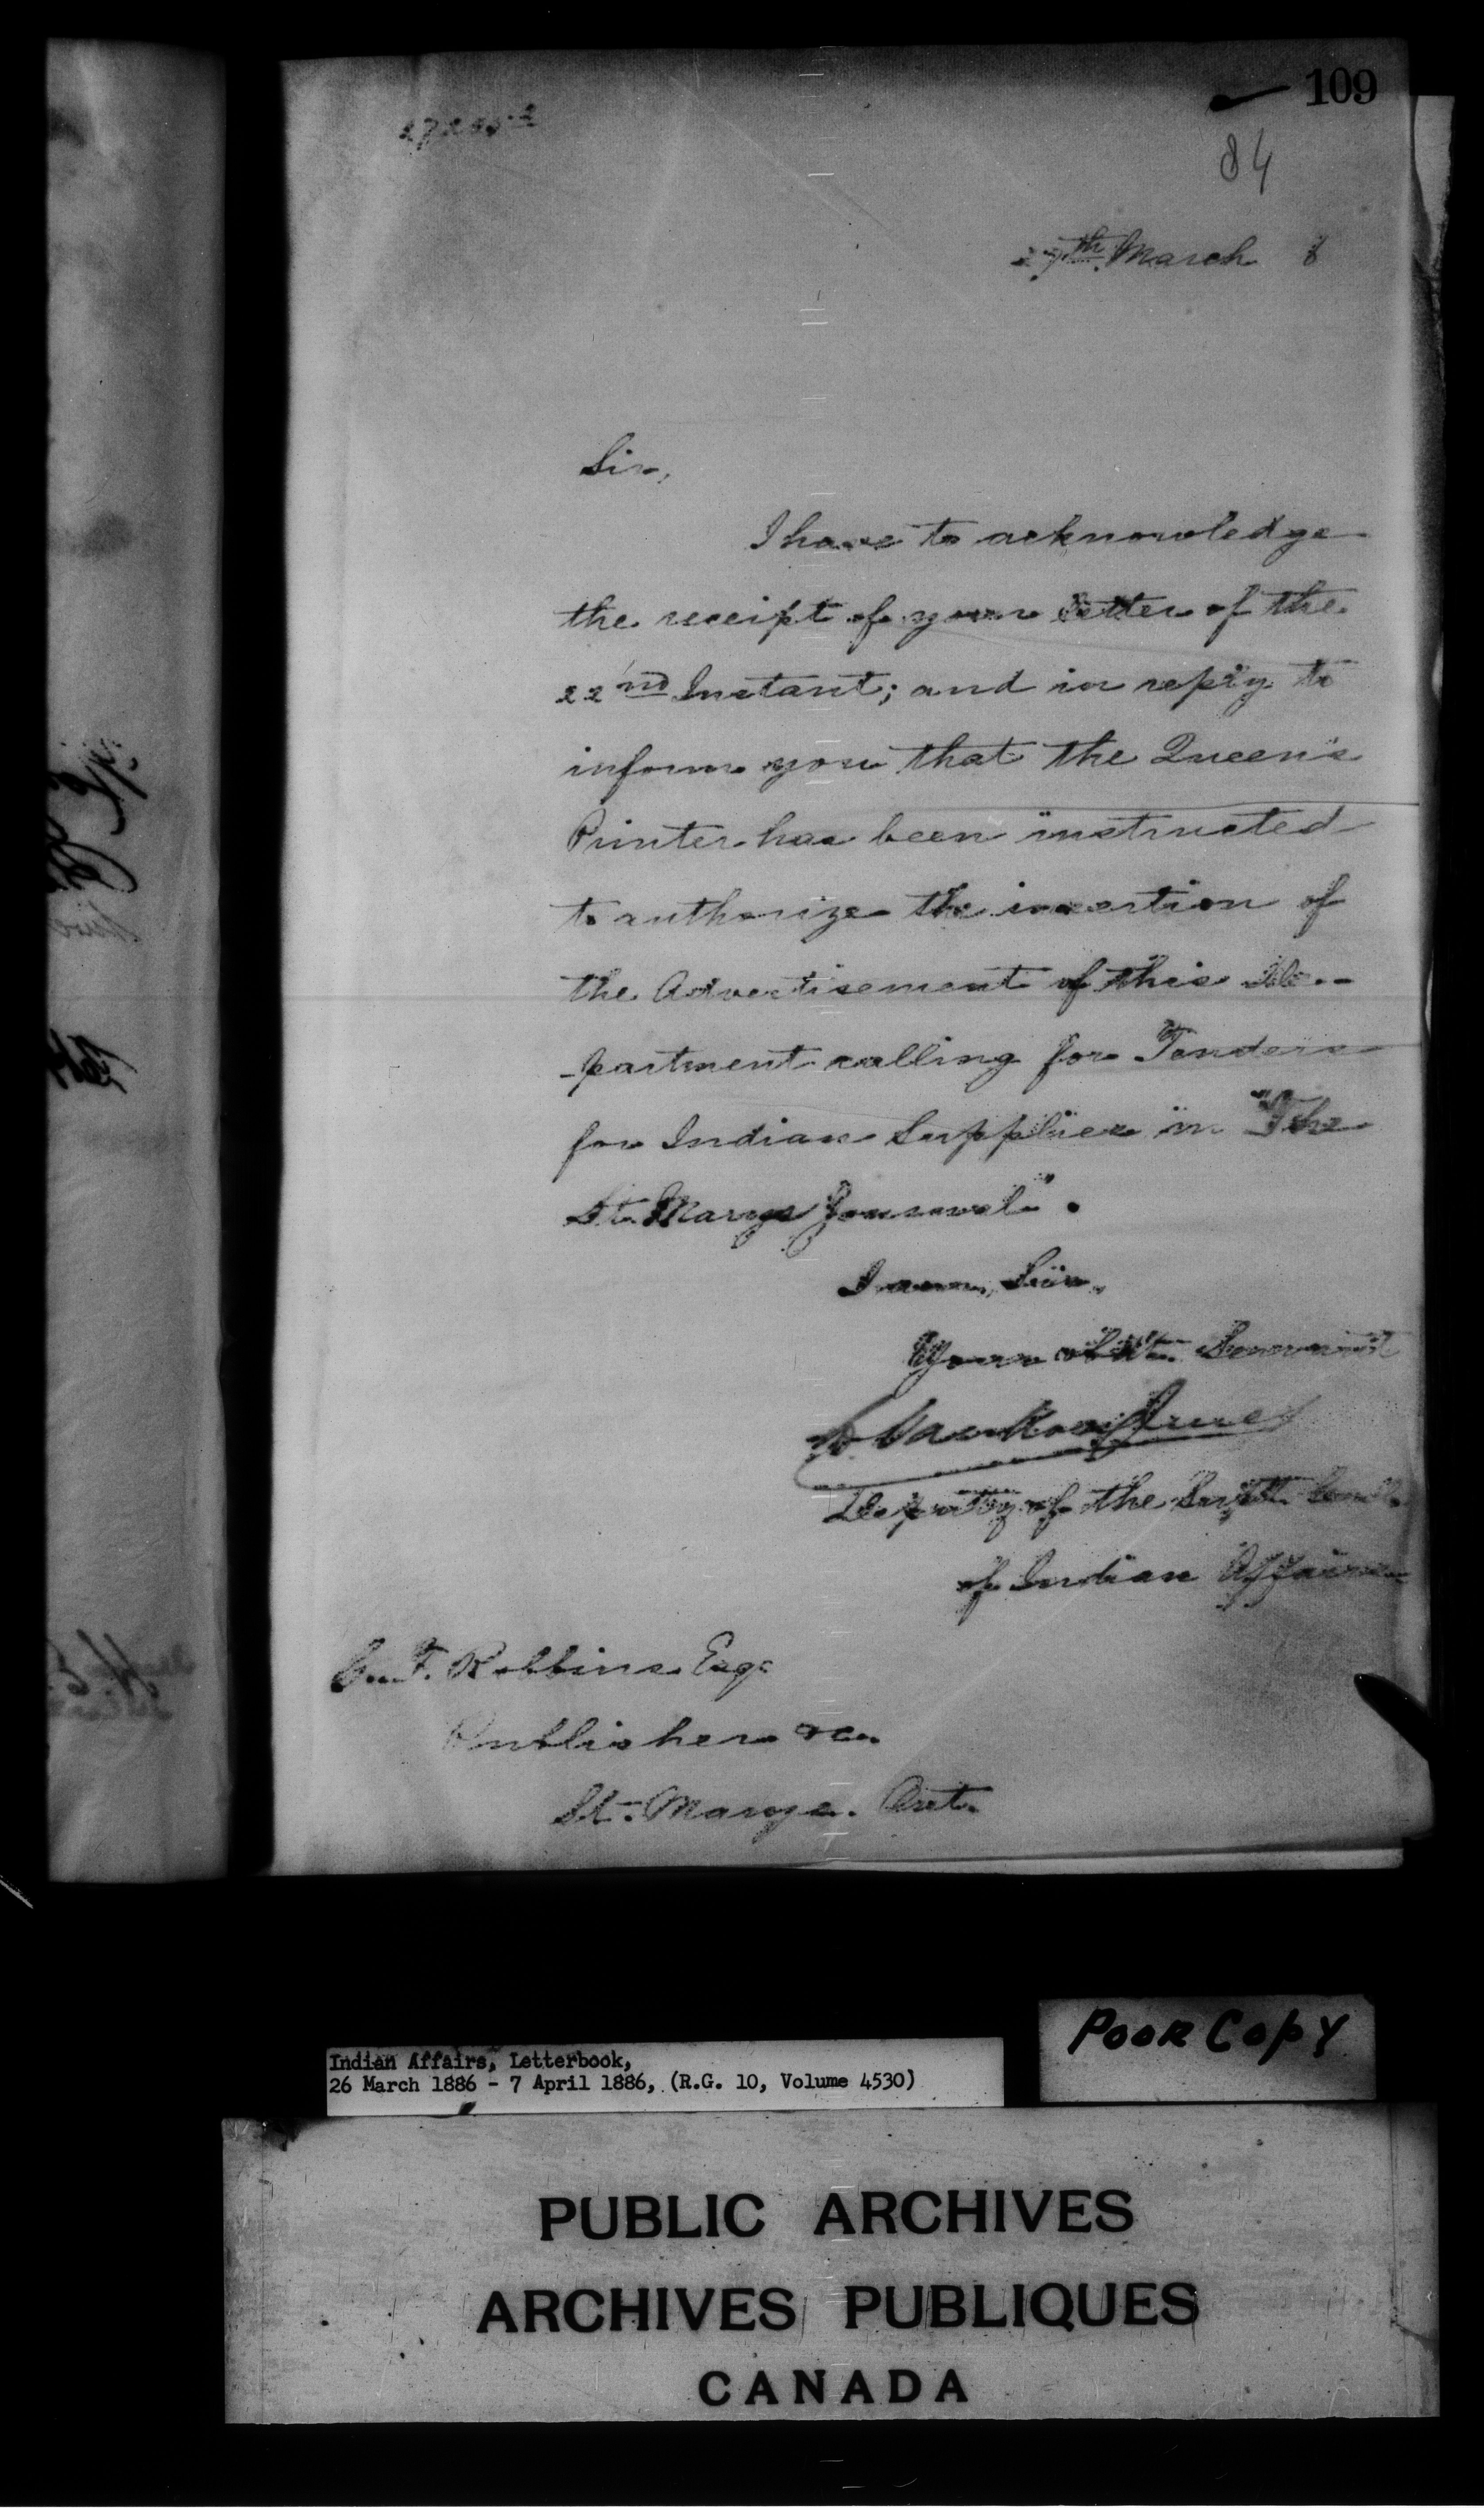 109
84
27th March 8
Sir,
I have to acknowledge
the receipt of your letter of the
22nd Instant; and in reply to
inform you that the Queen's
Printer has been instructed
to authorize the insertion of
the Advertisement of this De-
-partment calling for Tenders
for Indian Supplies in "The
St. Marys Journal".
I am, Sir,
Your obdt. Servant
L. VanKoughnet
Deputy of the Supt. Genl.
of Indian Affairs
F. Robbins Esq.
Publisher &c.
St. Marys. Ont.
Poor Copy
Indian Affairs, Letterbook,
26 March 1886 - 7 April 1886, (R.G. 10, Volume 4530)
PUBLIC ARCHIVES
ARCHIVES PUBLIQUES
CANADA